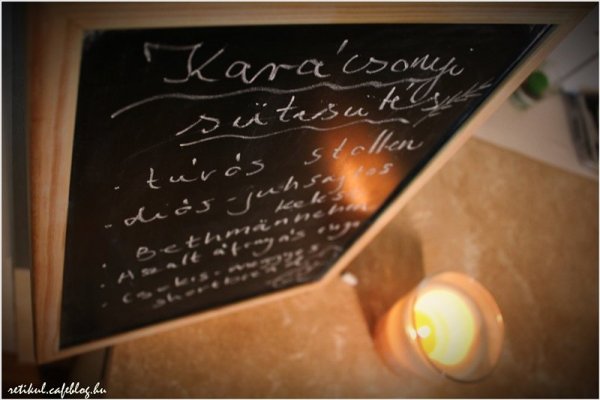 Karácsonyi
sütisütés
- túrós stollen
- diós-juhsajtos
keksz
- Bethmännchen
- Aszalt áfonyás
- Csokis-
shortbread
retikul.cafeblog.hu